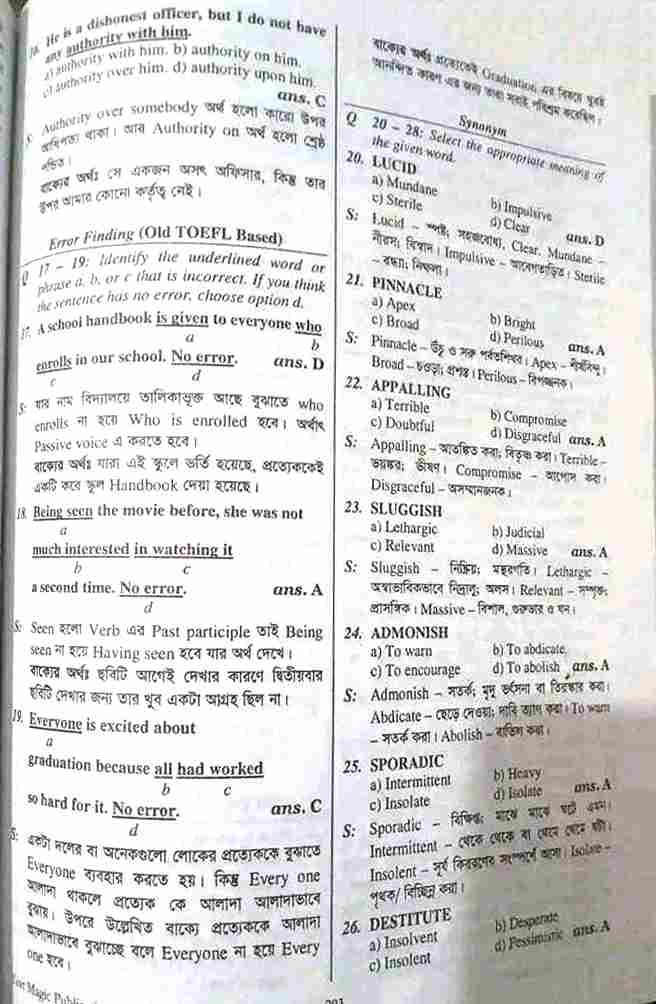 16. He is a dishonest officer, but I do not have
any authority with him.
a) authority with him. b) authority on him.
c) authority over him. d) authority upon him.
ans. C
S: Authority over somebody অর্থ হলো কারো উপর
আধিপত্য থাকা। আর Authority on অর্থ হলো শ্রেষ্ঠ
পন্ডিত।
বাক্যের অর্থঃ সে একজন অসৎ অফিসার, কিন্তু তার
উপর আমার কোনো কর্তৃত্ব নেই।
Error Finding (Old TOEFL Based)
Q 17 – 19: Identify the underlined word or
phrase a, b, or c that is incorrect. If you think
the sentence has no error, choose option d.
17. A school handbook is given to everyone who
a b
enrolls in our school. No error. ans. D
c d
S: যার নাম বিদ্যালয়ে তালিকাভুক্ত আছে বুঝাতে who
enrolls না হয়ে Who is enrolled হবে। অর্থাৎ
Passive voice এ করতে হবে।
বাক্যের অর্থঃ যারা এই স্কুলে ভর্তি হয়েছে, প্রত্যেককেই
একটি করে স্কুল Handbook দেয়া হয়েছে।
18. Being seen the movie before, she was not
a
much interested in watching it
b c
a second time. No error. ans. A
d
S: Seen হলো Verb এর Past participle তাই Being
seen না হয়ে Having seen হবে যার অর্থ দেখে।
বাক্যের অর্থঃ ছবিটি আগেই দেখার কারণে দ্বিতীয়বার
ছবিটি দেখার জন্য তার খুব একটা আগ্রহ ছিল না।
19. Everyone is excited about
a
graduation because all had worked
b c
so hard for it. No error. ans. C
d
S: একটা দলের বা অনেকগুলো লোকের প্রত্যেককে বুঝাতে
Everyone ব্যবহার করতে হয়। কিন্তু Every one
আলাদা থাকলে প্রত্যেক কে আলাদা আলাদাভাবে
বুঝায়। উপরে উল্লেখিত বাক্যে প্রত্যেককে আলাদা
আলাদাভাবে বুঝাচ্ছে বলে Everyone না হয়ে Every
one হবে।
Magic
বাক্যের অর্থঃ প্রত্যেকেই Graduation এর বিষয়ে খুবই
আনন্দিত কারণ এর জন্য তারা সবাই পরিশ্রম করেছিল।
Synonym
Q 20 – 28: Select the appropriate meaning of
the given word.
20. LUCID
a) Mundane b) Impulsive
c) Sterile d) Clear ans. D
S: Lucid – স্পষ্ট; সহজবোধ্য, Clear. Mundane –
নীরস; বিস্বাদ। Impulsive – আবেগতাড়িত। Sterile
– বন্ধ্যা; নিষ্ফলা।
21. PINNACLE
a) Apex b) Bright
c) Broad d) Perilous ans. A
S: Pinnacle – উঁচু ও সরু পর্বতশিখর। Apex – শীর্ষবিন্দু।
Broad – চওড়া; প্রশস্ত। Perilous – বিপজ্জনক।
22. APPALLING
a) Terrible b) Compromise
c) Doubtful d) Disgraceful ans. A
S: Appalling – আতঙ্কিত করা; বিতৃষ্ণ করা। Terrible –
ভয়ঙ্কর; ভীষণ। Compromise – আপোস করা।
Disgraceful – অসম্মানজনক।
23. SLUGGISH
a) Lethargic b) Judicial
c) Relevant d) Massive ans. A
S: Sluggish – নিষ্ক্রিয়; মন্থরগতি। Lethargic –
অস্বাভাবিকভাবে নিদ্রালু; অলস। Relevant – সম্পৃক্ত;
প্রাসঙ্গিক। Massive – বিশাল, গুরুভার ও ঘন।
24. ADMONISH
a) To warn b) To abdicate
c) To encourage d) To abolish ans. A
S: Admonish – সতর্ক; মৃদু ভর্ৎসনা বা তিরস্কার করা।
Abdicate – ছেড়ে দেওয়া; দাবি ত্যাগ করা। To warn
– সতর্ক করা। Abolish – বাতিল করা।
25. SPORADIC
a) Intermittent b) Heavy
c) Insolate d) Isolate ans. A
S: Sporadic – বিক্ষিপ্ত; মাঝে মাঝে ঘটে এমন।
Intermittent – থেকে থেকে বা থেমে থেমে ঘটা।
Insolent – সূর্য কিরণের সংস্পর্শে আসা। Isolate –
পৃথক/ বিচ্ছিন্ন করা।
26. DESTITUTE
a) Insolvent b) Desperate
c) Insolent d) Pessimistic ans. A